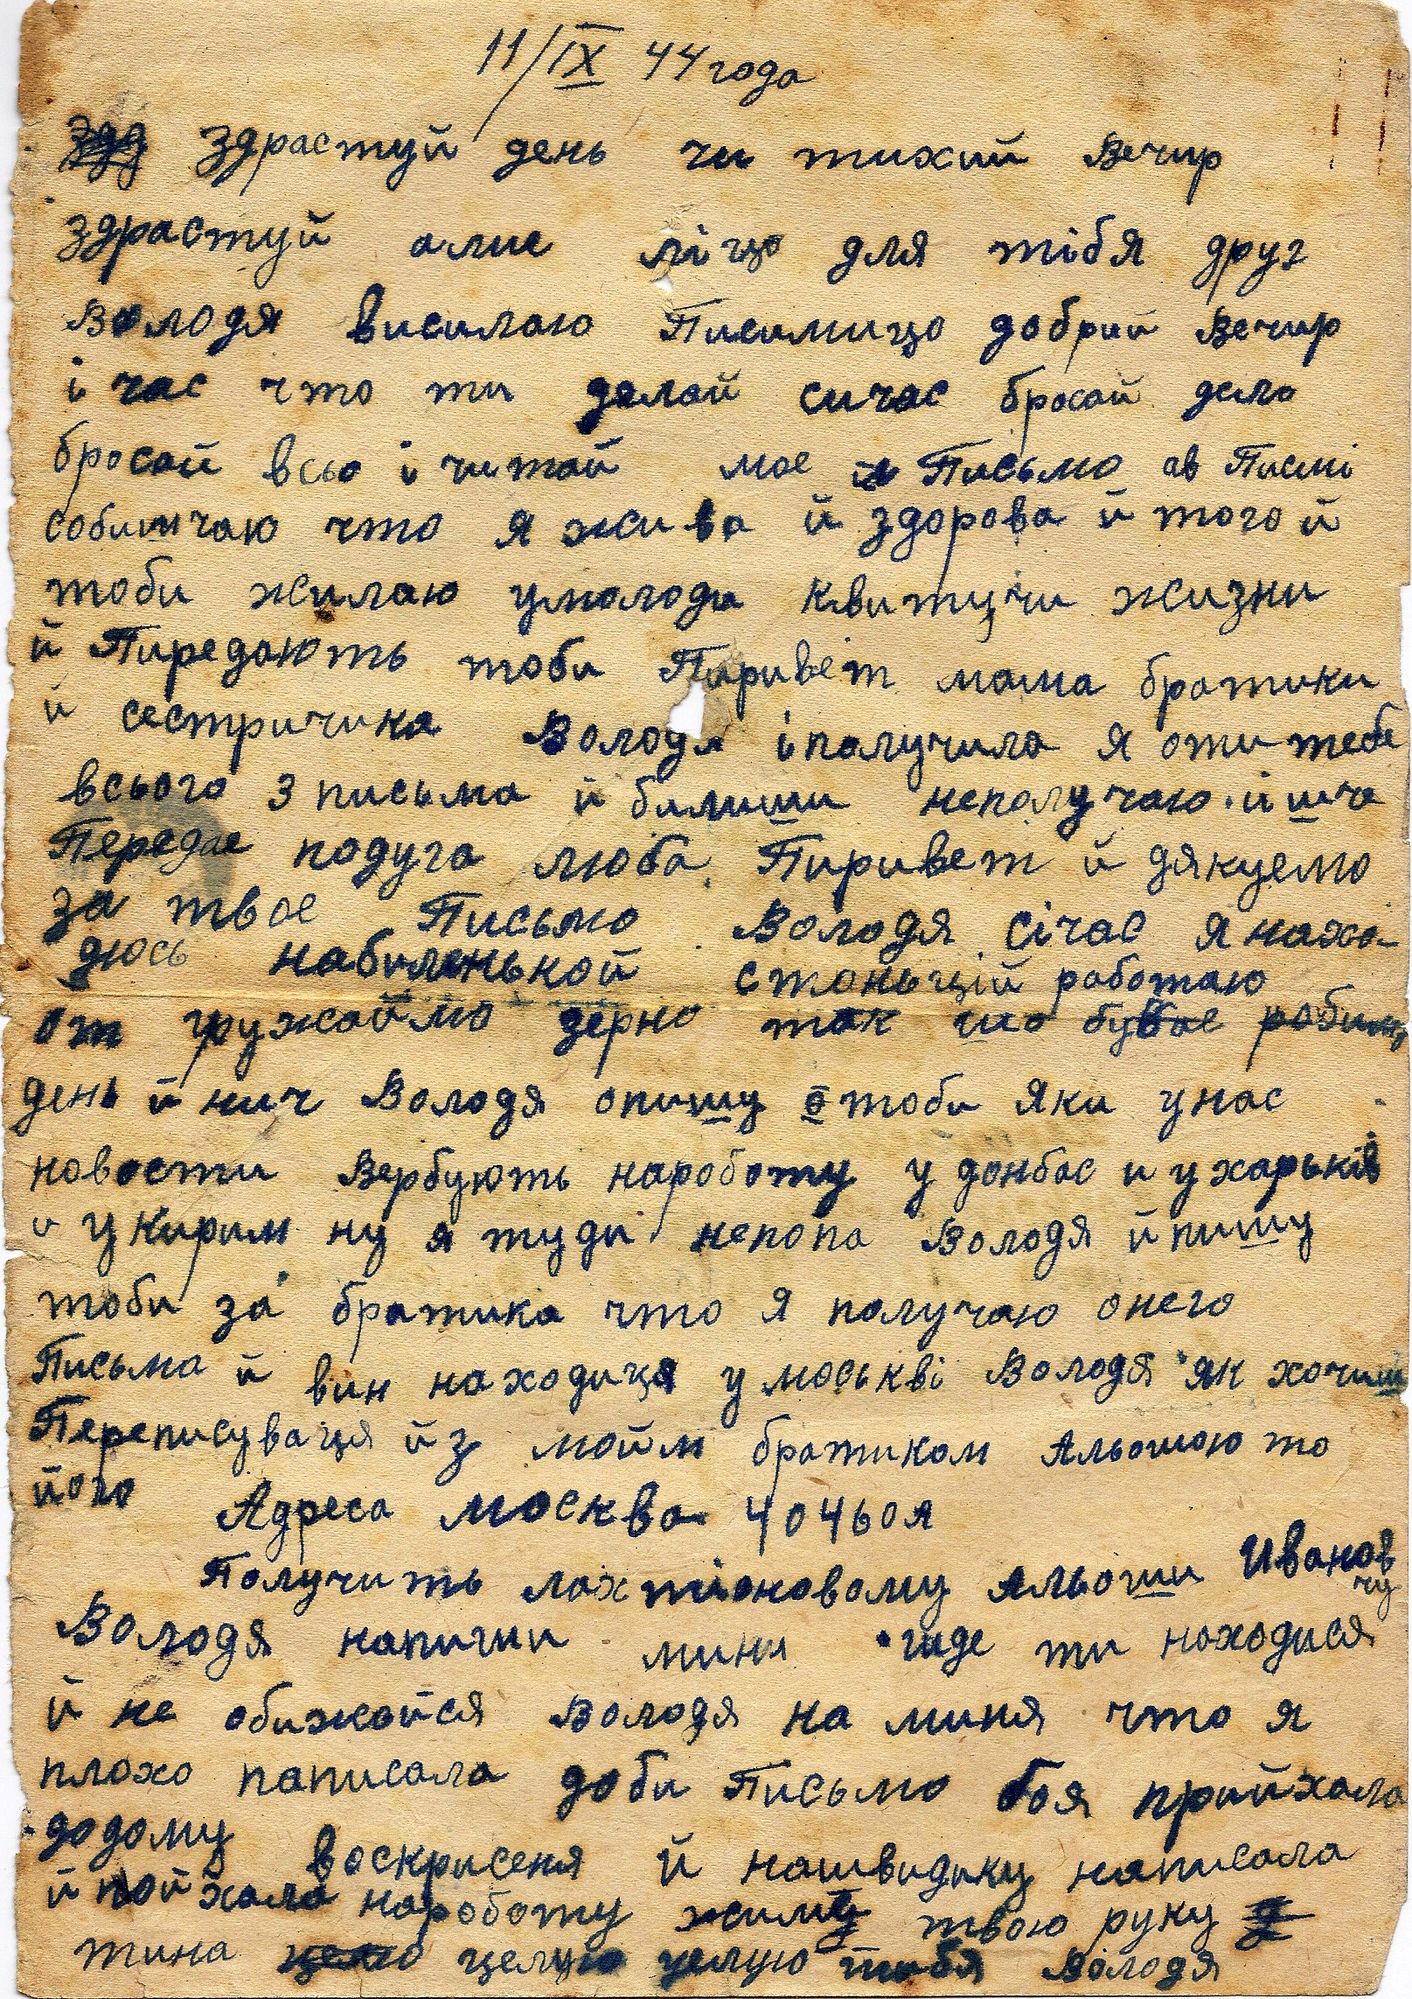 11/IX 44 года
Здрастуй день чи тихий Вечир
здрастуй алиеліцо для тібя друг
Володя висилаю Писимицо добрий Вечир
і час что ти делай сичас бросай дела
бросай всьо і читай мое Письмо ав Писмі
собищчаю что я жива й здорова й того й
тоби жилаю умолоди квитучи жизни
й Пиредають тоби Пиривет мама братики
й сестричика Володя і получила я оти тебе
всього 3 письма й билиши неполучаю. й ище
Передае подуга люба. Пиривет й дякуемо
за твое Письмо Володя січас я нахо-
дюсь набиленькой станьцій работаю
от гружаймо зерно так шо бувае робим
день й нич Володя опишу тоби Яки унас
новости Вербують нароботу у донбас и у харькiв
и укирим ну я туди непопа Володя й пишу
тоби за братика что я получаю онего
Письма й вин находиця у моськві Володя як хочиш
Переписуваця йз мойм братиком Альошою то
його Адреса москва 40460я
Получить лахтіоновому Альоши Иванов
чу
Володя напиши мини гиде ти находися
й не обижайся Володя на миня что я
плохо написала доби Письмо боя прийхала
додому воскрисеня й нашвидику написала
й пойхала нароботу жиму твою руку
тина целую целую тибя Володя